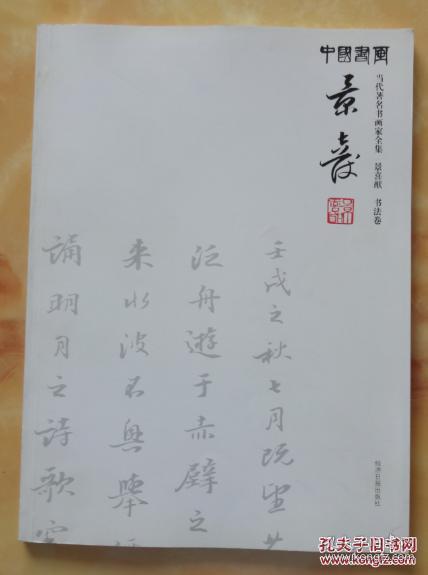 中國書風
当代著名书画家全集 景喜猷 书法卷
壬戌之秋七月既望
泛舟遊于赤壁之
来水波不興舉
誦明月之詩歌窈
经济日报出版社
孔夫子旧书网